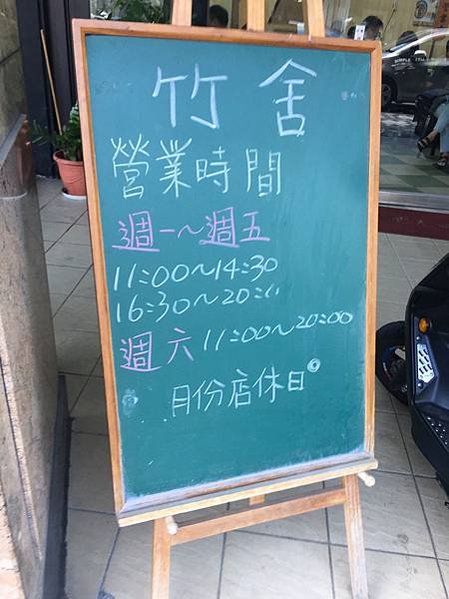 竹舍
營業時間
週一～週五
11:00～14:30
16:30～20:
週六 11:00～20:00
月份店休日